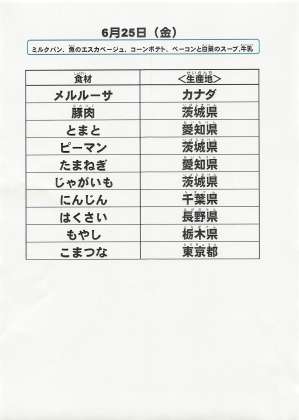 6月25日（金）
ミルクパン、魚のエスカベージュ、コーンポテト、ベーコンと白菜のスープ,牛乳
食材 ＜生産地＞
メルルーサ カナダ
豚肉 茨城県
とまと 愛知県
ピーマン 茨城県
たまねぎ 愛知県
じゃがいも 茨城県
にんじん 千葉県
はくさい 長野県
もやし 栃木県
こまつな 東京都